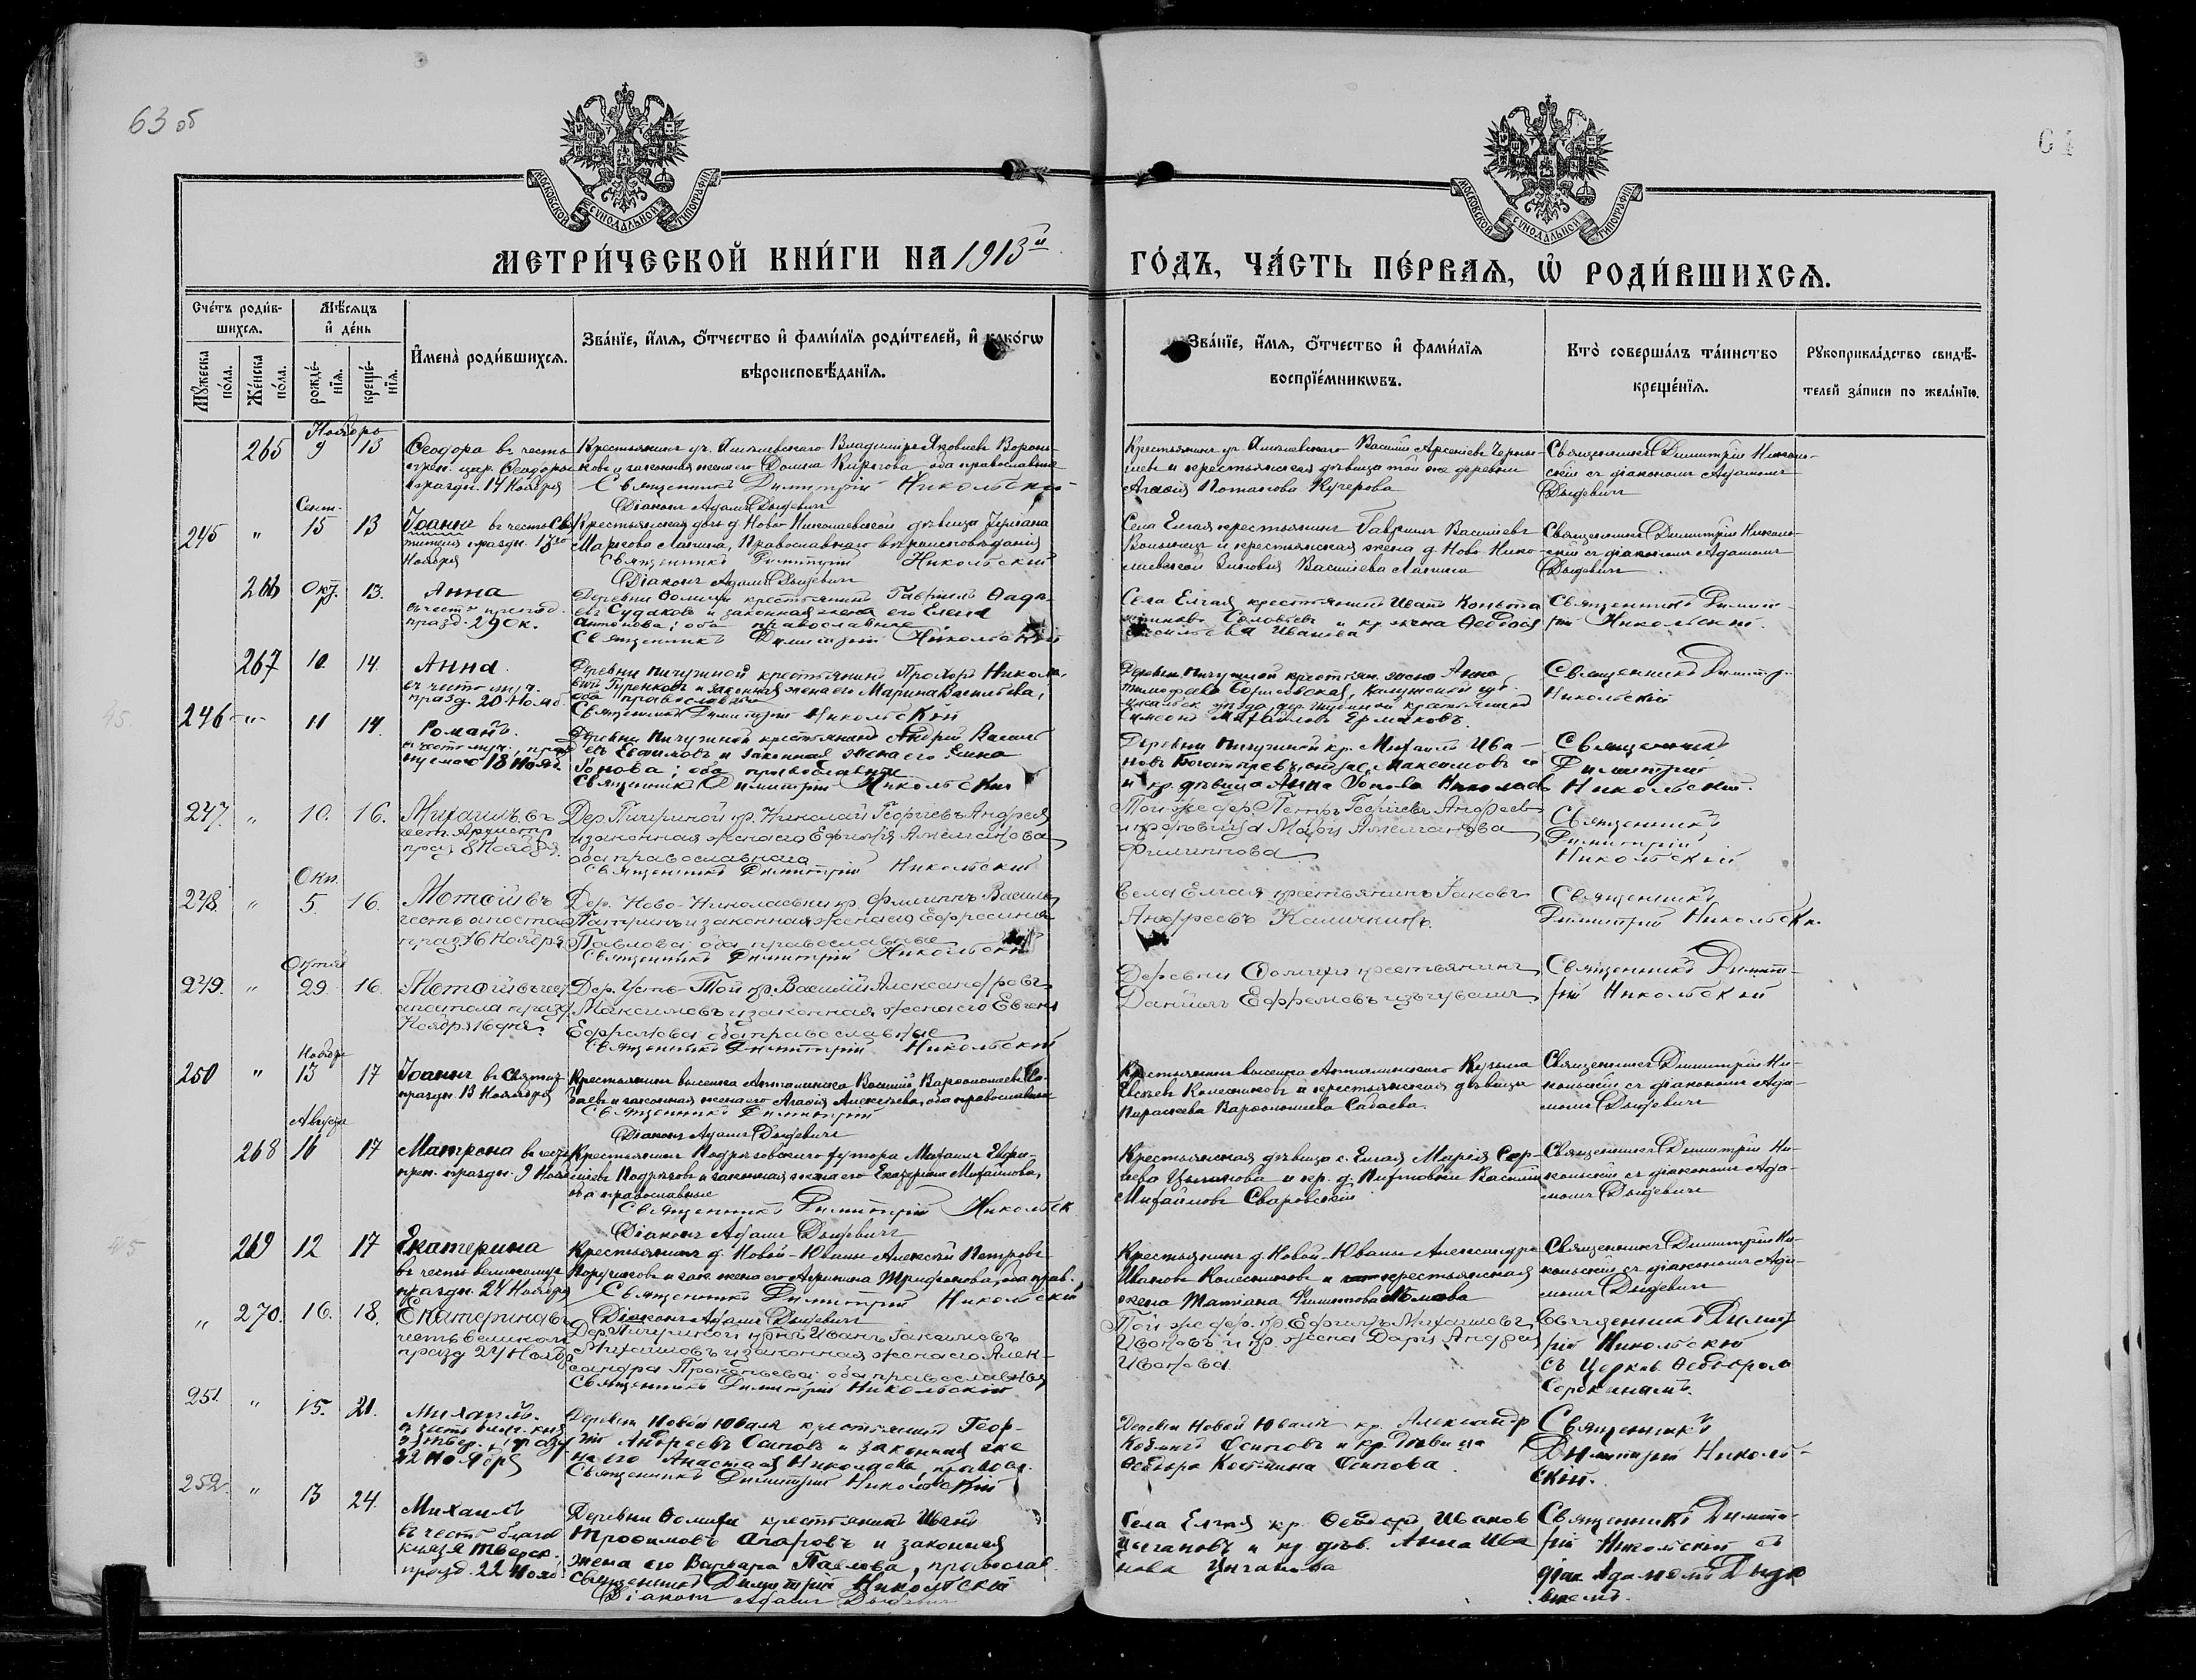 63 об
64
МОСКОВСКОЙ СУНОДАЛЬНОЙ ТИПОГРАФІИ
МОСКОВСКОЙ СУНОДАЛЬНОЙ ТИПОГРАФІИ
МЕТРИ́ЧЕСКОЙ КНИ́ГИ НА 1913й ГО́ДЪ, ЧА́СТЬ ПЕ́РВАЯ, Ѡ РОДИ́ВШИХСЯ.
Сче́тъ роди́в-
шихся.
Мꙋ́жеска по́ла.
Же́нска по́ла.
Мѣ́сяцъ
и҆ де́нь
рожде́-
нїя.
креще́-
нїя.
И҆мена̀ роди́вшихся.
Зва́нїе, и҆́мя, ѻ҆́тчество и҆ фами́лїя роди́телей, и҆ како́гѡ
вѣроисповѣ́данїя.
Зва́нїе, и҆́мя, ѻ҆́тчество и҆ фами́лїя
воспрїе́мникѡвъ.
Кто̀ соверша́лъ та́инство
креще́нїя.
Рꙋкоприкла́дство свидѣ́-
телей за́писи по жела́нїю.
Ноябрь
265 9 13
Ѳеодора въ честь
прп. цар. Ѳеодоры
праздн. 14 Ноября
Владиміръ Яковлевъ Ворон-
ковъ и законная жена его Домна Кирѣева оба православные
Священникъ Димитрій Никольскій
Діаконъ Адамъ Дыдевичъ
Василій Арсеніевъ Черны-
шевъ и крестьянская дѣвица той же деревни
Агаѳія Потапова Кучерова
Священникъ Димитрій Николь-
скій съ діакономъ Адамомъ
Дыдевичъ
Сент.
245 " 15 13
Іоаннъ въ честь Свя-
тителя праздн. 13го
Ноября
Крестьянская дочь д. Ново-Николаевской дѣвица
Маркова Лапина, Православнаго вѣроисповѣданія
Священникъ Димитрій Никольскій
Діаконъ Адамъ Дыдевичъ
Села Елгая крестьянинъ Гавріилъ Васильевъ
и крестьянская жена д. Ново-Нико-
лаевской Зиновія Васильева Лапина
Священникъ Димитрій Николь-
скій съ діакономъ Адамомъ
Дыдевичъ.
266 Окт. 13.
Анна
въ честь препод.
празд. 29 Ок.
Деревни Ѳомихи крестьянинъ Гавріилъ Ѳаде-
евъ Судаковъ и законная жена его Елена
Антонова; оба православные
Священникъ Димитрій Никольскій
Села Елгая крестьянинъ Иванъ Конста
нтиновъ Соловьевъ и кр. жена Ѳеодосія
Иванова
Священникъ Димит-
рій Никольскій.
267 10 14.
Анна.
въ честь муч.
празд. 20 Нояб.
Деревни Пичугиной крестьянинъ Прохоръ Никола-
евъ Гуренковъ и законная жена его Марина Васильева,
оба православные
Священникъ Димитрій Никольскій
Деревни Пичугиной крестьян. жена Анна
Тимоѳеева Борисовская, Калужской губ.
уѣзда, дер. крестьянинъ
Симеонъ Михайловъ Ермаковъ.
Священникъ Димитр.
Никольскій
246 " 11 14.
Романъ.
въ честь муч., празд
нуемаго 18 Нояб.
Деревни Пичугиной крестьянинъ Андрей Василь
евъ Евѳимовъ и законная жена его Елена
Іонова; оба православные
Священникъ Димитрій Никольскій
Деревни Пичугиной кр. Михаилъ Ива-
новъ
и кр. дѣвица Анна Іонова
Священникъ
Димитрій
Никольскій.
247. " 10. 16.
Михаилъ въ
чест. Архистр
праз. 8 Ноября.
Дер. Пичугиной кр. Николай Георгіевъ Андреев
и законная жена его Ефимія Амелянова
оба православнаго
Священникъ Димитрій Никольскій
Той же дер. Петръ Георгіевъ Андреевъ
и кр. дѣвица Марія Амелянова
Филиппова
Священникъ
Димитрій
Никольскій
Окт.
248. " 5. 16.
Матѳій въ
честь апостол
праз 16 Ноября
Дер. Ново-Николаевки кр. Филиппъ Василь
и законная жена его Ефросинія
Павлова оба православные
Священникъ Димитрій Никольскій
Села Елгая крестьянинъ Іаковъ
Андреевъ Калачкинъ.
Священникъ
Димитрій Никольскій.
Октяб
249. " 29. 16.
Матѳій въ чес
апостола празд
Ноября 16 дня.
Дер. Усть-Той кр. Василій Александровъ
Максимовъ и законная жена его Евгенія
Ефремова оба православные
Священникъ Димитрій Никольскій
Деревни Ѳомихи крестьянинъ
Даніилъ Ефремовъ изъ чувашъ
Священникъ Димит-
рій Никольскій
Ноября
250 " 13 17
Іоаннъ въ Святит
праздн. 13 Ноября
Крестьянинъ выселка Василій Варѳоломеевъ Са-
баевъ и законная жена его Агаѳія Алексѣева, оба православные
Священникъ Димитрій
Діаконъ Адамъ Дыдевичъ
Крестьянинъ выселка Кузьма
Евсѣевъ Колесниковъ и крестьянская дѣвица
Параскева Варѳоломеева Сабаева.
Священникъ Димитрій Ни-
кольскій съ діакономъ Ада-
момъ Дыдевичъ
Августа
268 16 17
Матрона въ честь
прп. праздн. 9 Нояб
Крестьянинъ Подрѣзовскаго хутора Михаилъ
Подрѣзовъ и законная жена его Екатерина Михайлова,
оба православные
Священникъ Димитрій Никольск.
Діаконъ Адамъ Дыдевичъ
Крестьянская дѣвица с. Елгая Марія Сер-
гѣева Цыганова и кр. д. Василій
Михайловъ Сваровскій
Священникъ Димитрій Ни-
кольскій съ діакономъ Ада-
момъ Дыдевичъ
269 12 17
Екатерина
въ честь великомуч
праздн. 24 Ноября
Крестьянинъ д. Новой-Ювалы Алексѣй Петровъ
и зак. жена его Агрипина Трифонова, оба прав.
Священникъ Димитрій Никольскій
Діаконъ Адамъ Дыдевичъ
Крестьянинъ д. Новой-Ювалы Александръ
Ивановъ Колесниковъ и крестьянская
жена Татіана Филиппова
Священникъ Димитрій Ни-
кольскій съ діакономъ Ада-
момъ Дыдевичъ
" 270. 16. 18.
Екатерина въ
честь великом
празд 24 Ноябр
Дер. Пичугиной Иванъ Іакимовъ
Михайловъ и законная жена его Алек-
сандра Прокопьева оба православныя
Священникъ Димитрій Никольскій
Той же дер. кр. Ефимъ Михайловъ
Ивановъ и кр. жена Дарія Андрея
Иванова
Священникъ Димит
рій Никольскій
съ Церков. Ѳеодоромъ
Сорокинамъ.
251. " 15. 21.
Михаилъ.
въ честь благ. княз
Твер., празд
22 Ноября
Деревни Новой Ювалы крестьянинъ Геор-
гій Андреевъ Осиповъ и законная же
на его Анастасія Николаева, правосл.
Священникъ Димитрій Никольскій
Деревни Новой Ювалы кр. Александръ
Осиповъ и кр. дѣвица
Ѳеодора Осипова.
Священникъ
Димитрій Николь-
скій.
252. " 13 24.
Михаилъ
въ честь благов
князя Тверск.
празд. 22 Нояб.
Деревни Ѳомихи крестьянинъ Иванъ
Трофимовъ Агафовъ и законная
жена его Варвара Павлова, православ.
Священникъ Димитрій Никольскій
Діаконъ Адамъ Дыдевичъ
Села Елгая кр. Ѳеодоръ Иванов
Цыгановъ и кр. дѣв. Анна Ива
нова Цыганова
Священникъ Димит-
рій Никольскій съ
діак. Адамомъ Дыде
вичемъ.
45.
45